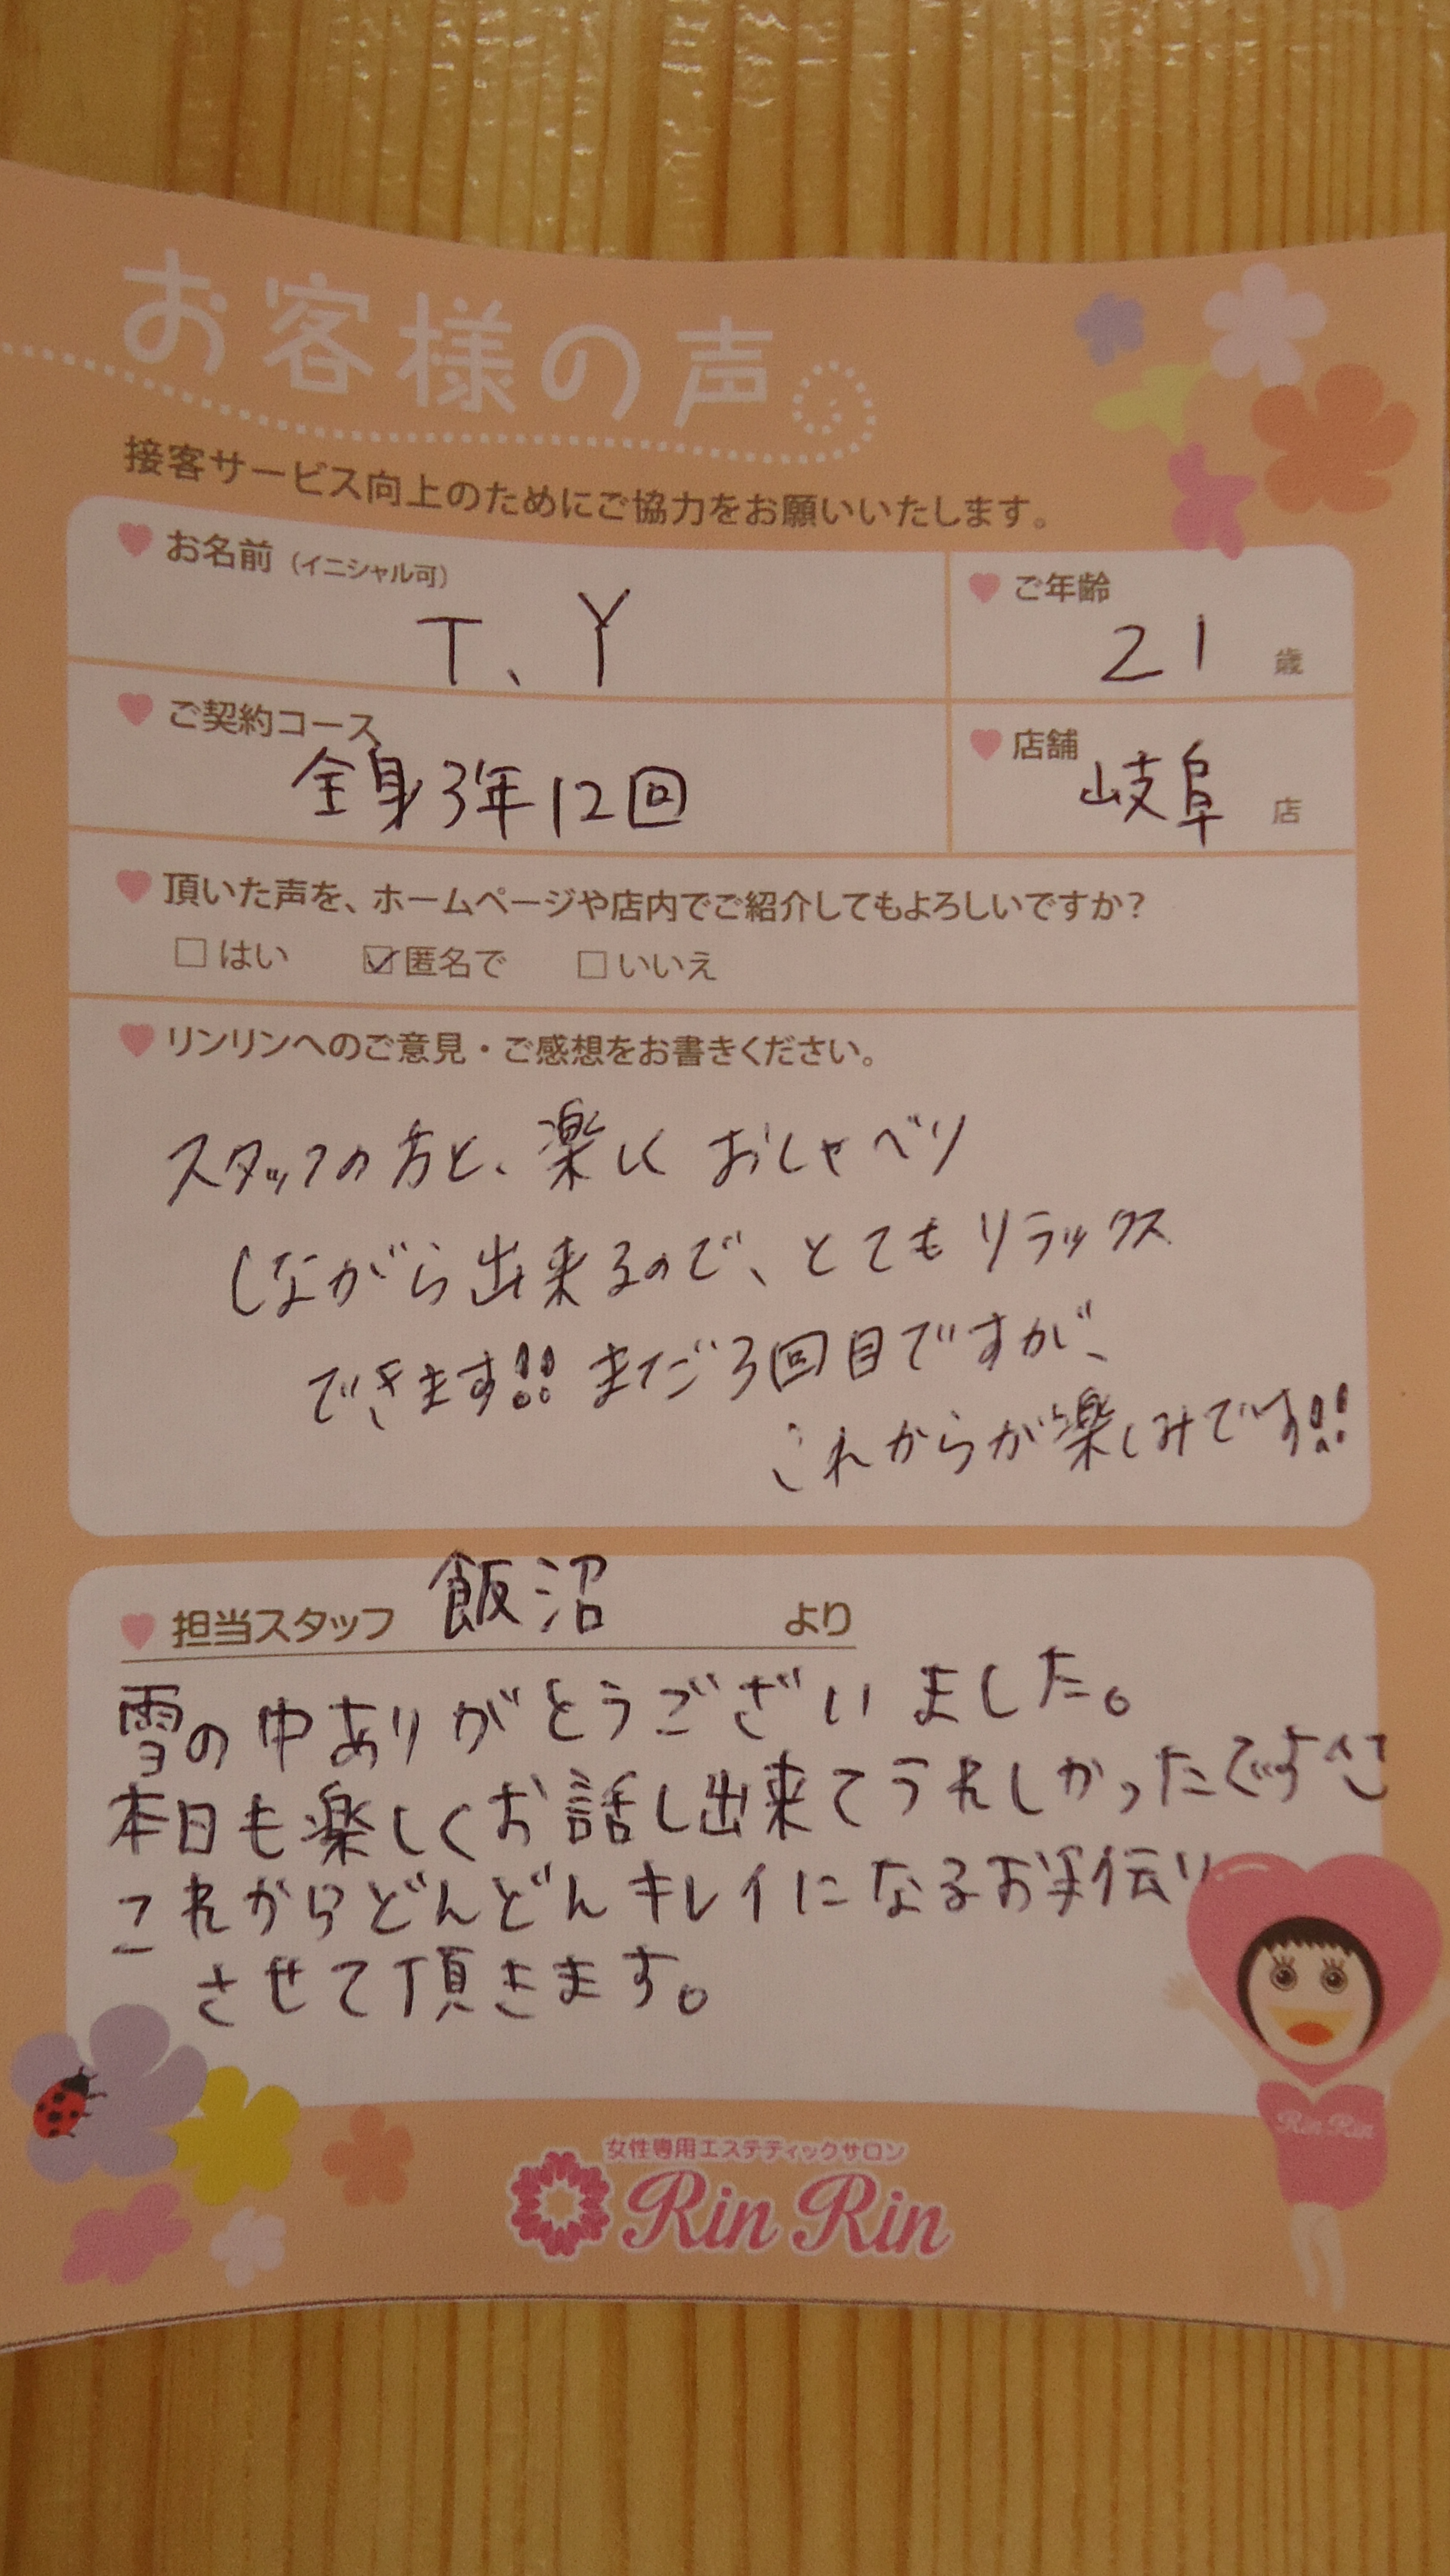 お客様の声
接客サービス向上のためにご協力をお願いいたします。
お名前（イニシャル可）
T、Y
ご年齢
21 歳
ご契約コース
全身3年12回
店舗
岐阜 店
頂いた声を、ホームページや店内でご紹介してもよろしいですか？
□はい ☑匿名で □いいえ
リンリンへのご意見・ご感想をお書きください。
スタッフの方と、楽しくおしゃべり
しながら出来るので、とてもリラックス
できます!! まだ3回目ですが、
これからが楽しみです!!
担当スタッフ 飯沼 より
雪の中ありがとうございました。
本日も楽しくお話し出来てうれしかったです
これからどんどんキレイになるお手伝い
させて頂きます。
Rin Rin
女性専用エステティックサロン
Rin Rin